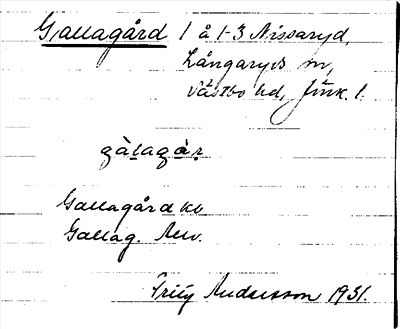 Gallagård 1 å 1-3 Nissaryd,
Långaryds sn,
Västbo hd, Jönk. l.
gàlagàr
Gallagård
Gallag.
Fritz Andersson 1931.